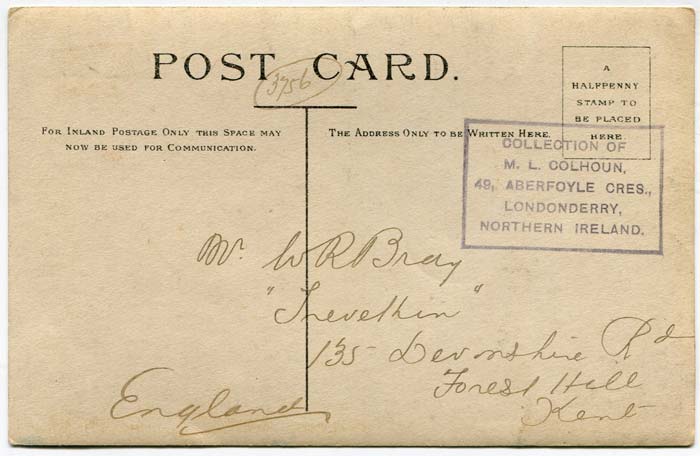 POST CARD.
3756
A
HALFPENNY
STAMP TO
BE PLACED
HERE.
FOR INLAND POSTAGE ONLY THIS SPACE MAY
NOW BE USED FOR COMMUNICATION.
THE ADDRESS ONLY TO BE WRITTEN HERE.
COLLECTION OF
M. L. COLHOUN,
49, ABERFOYLE CRES.,
LONDONDERRY,
NORTHERN IRELAND.
Mr. W R Bray
"Trevethin"
135 Devonshire Rd
Forest Hill
Kent
England